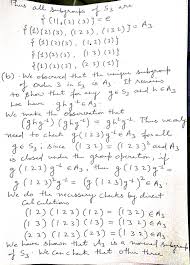 Thus all subgroups of S3 are
{ (1)(2)(3) } = e
{ (1)(2)(3), (123), (132) } = A3
{ (1)(2)(3), (1,2)(3) }
{ (1)(2)(3), (13)(2) }
{ (1)(2)(3), (23)(1) }
(b) We observed that the unique subgroup
of order 3 in S3 is A3. It remains
to show that for any g ∈ S3 and h ∈ A3
we have ghg⁻¹ ∈ A3
We make the
(ghg⁻¹)(ghg⁻¹) = gh²g⁻¹. Thus we only
need to check g(123)g⁻¹ ∈ A3 for all
g ∈ S3, since (132) = (123)² and A3
is closed under the group operation, if
g(123)g⁻¹ ∈ A3, then g(132)g⁻¹ =
g(123)²g⁻¹ = (g(123)g⁻¹)² ∈ A3.
We do the necessary checks by direct
calculations
(12)(123)(12) = (132) ∈ A3
(13)(123)(13) = (132) ∈ A3
(23)(123)(23) = (132) ∈ A3
We have shown that A3 is a normal subgroup
of S3. We can check that other three